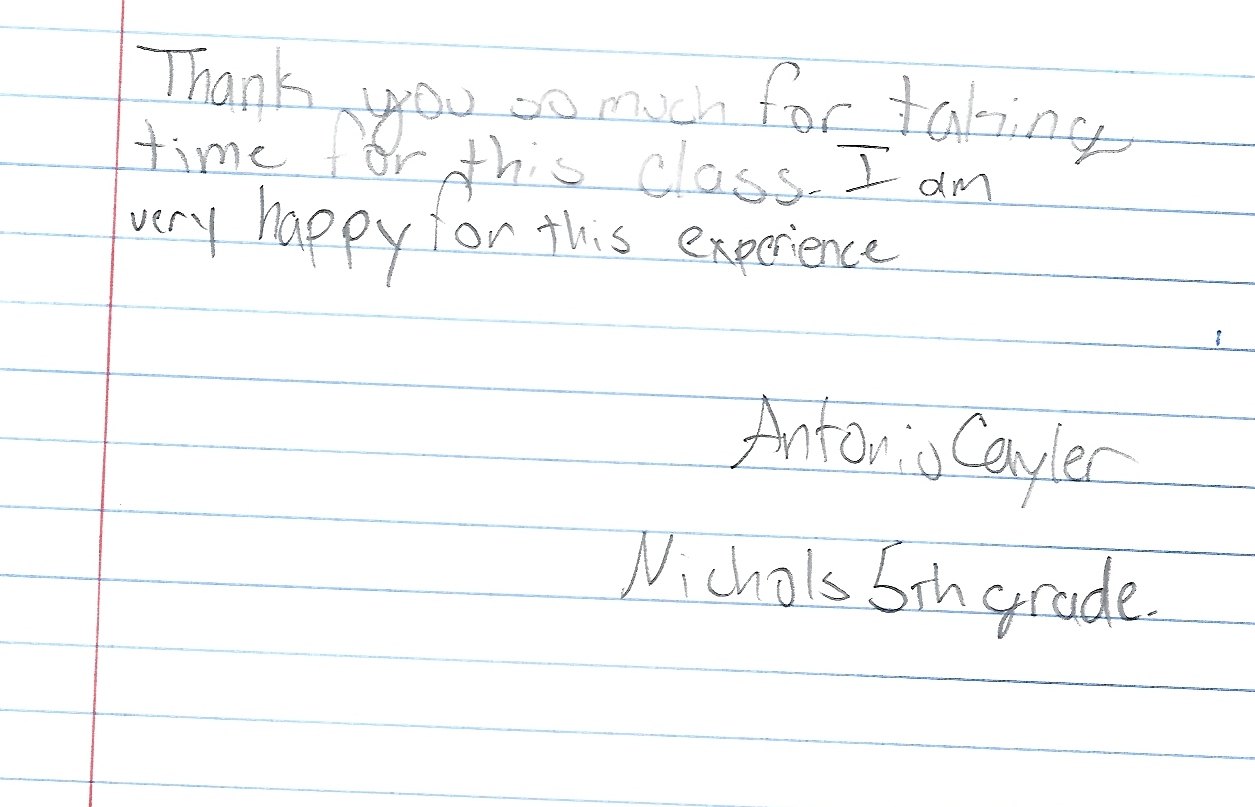 Thank you so much for taking
time for this class. I am
very happy for this experience
Antonio Cayler
Nichols 5th grade.